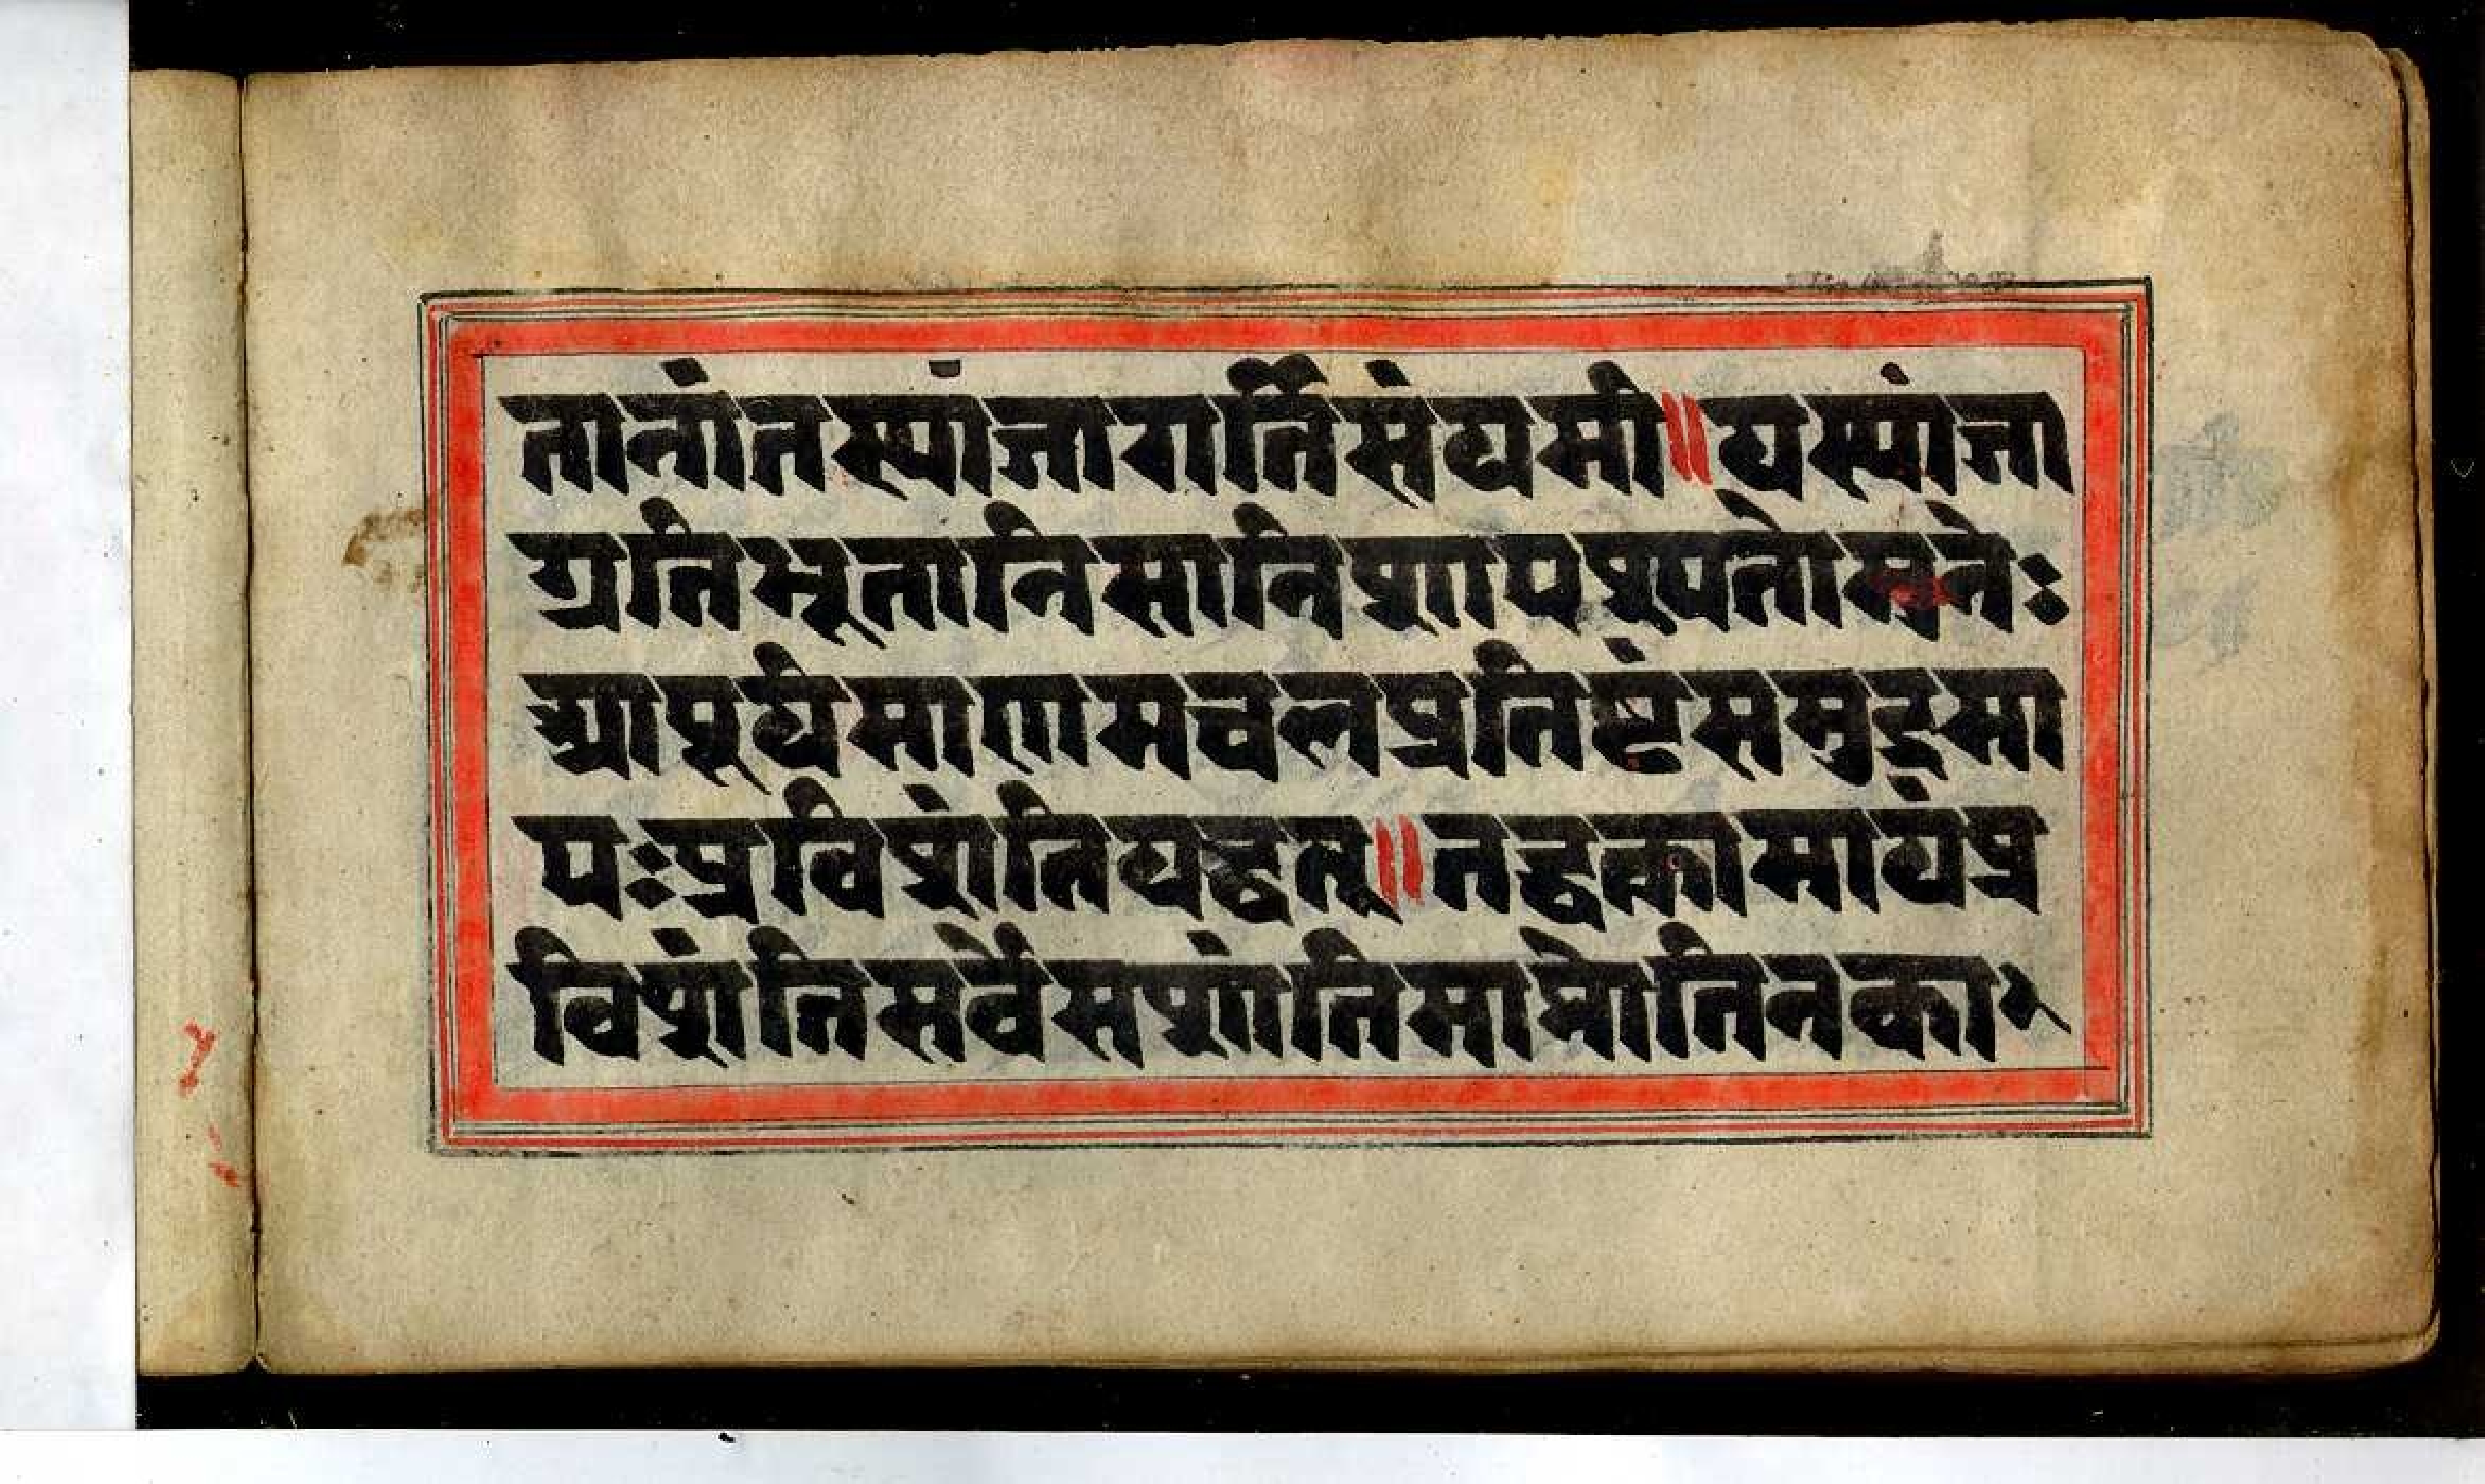 तानांतस्यांजागर्तिसंयमी॥यस्यांजा
ग्रतिभूतानिसानिशापश्यतोमुनेः
आपूर्यमाणमचलप्रतिष्टंसमुद्रमा
पःप्रविशंतियद्वत्॥तद्वत्कामायंप्र
विशंतिसर्वेसशांतिमाप्नोतिनका